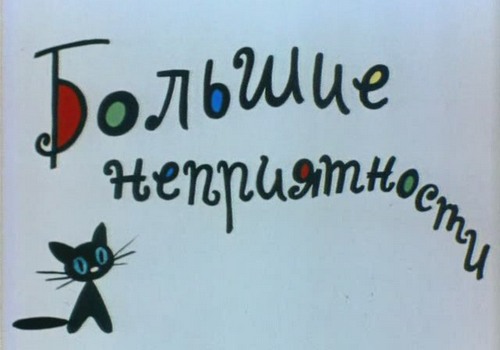 Большие
неприятности